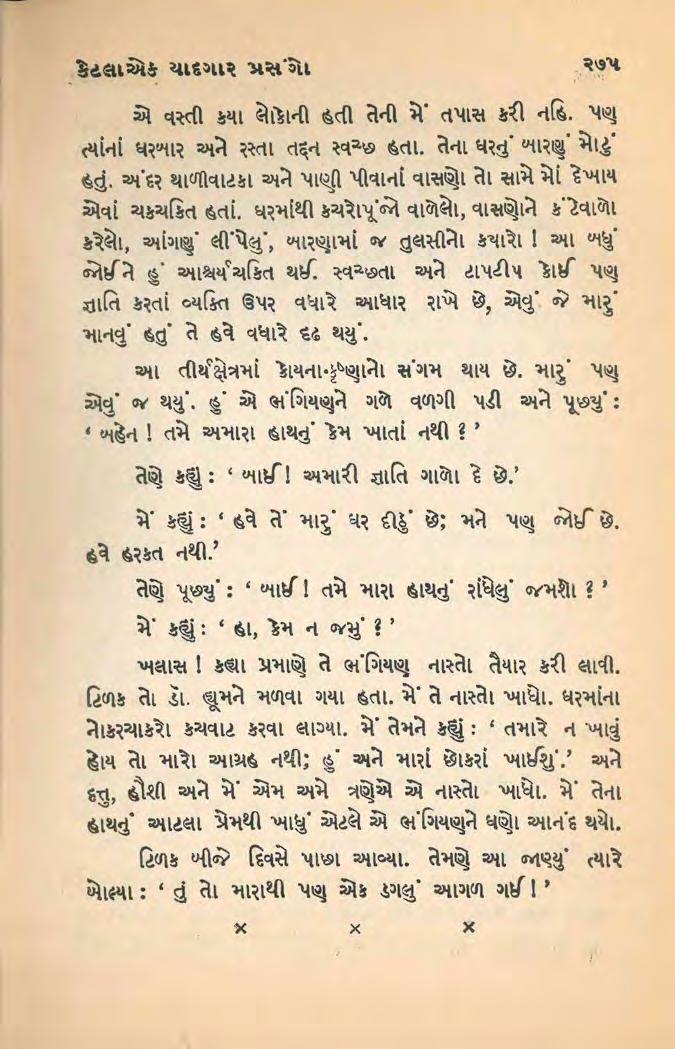 કેટલાએક યાદગાર પ્રસંગો ૨૭૫
એ વસ્તી કયા લોકોની હતી તેની મેં તપાસ કરી નહિ. પણ
ત્યાંનાં ઘરબાર અને રસ્તા તદ્દન સ્વચ્છ હતા. તેના ઘરનું બારણું મોટું
હતું. અંદર થાળીવાટકા અને પાણી પીવાનાં વાસણો તો સામે મોં દેખાય
એવાં ચકચકિત હતાં. ઘરમાંથી કચરોપૂંજો વાળેલો, વાસણોને કંટેવાળો
કરેલો, આંગણું લીંપેલું, બારણામાં જ તુલસીનો કયારો ! આ બધું
જોઈને હું આશ્ચર્યચકિત થઈ. સ્વચ્છતા અને ટાપટીપ કોઈ પણ
જ્ઞાતિ કરતાં વ્યક્તિ ઉપર વધારે આધાર રાખે છે, એવું જે મારું
માનવું હતું તે હવે વધારે દૃઢ થયું.
આ તીર્થક્ષેત્રમાં કોયના-કૃષ્ણાનો સંગમ થાય છે. મારું પણ
એવું જ થયું. હું એ ભંગિયણને ગળે વળગી પડી અને પૂછ્યું :
‘ બહેન ! તમે અમારા હાથનું કેમ ખાતાં નથી ? ’
તેણે કહ્યું : ‘ બાઈ ! અમારી જ્ઞાતિ ગાળો દે છે.’
મેં કહ્યું : ‘ હવે તેં મારું ઘર દીઠું છે; મને પણ જોઈ છે.
હવે હરકત નથી.’
તેણે પૂછ્યું : ‘ બાઈ ! તમે મારા હાથનું રાંધેલું જમશો ? ’
મેં કહ્યું : ‘ હા, કેમ ન જમું ? ’
ખલાસ ! કહ્યા પ્રમાણે તે ભંગિયણ નાસ્તો તૈયાર કરી લાવી.
ટિળક તો ડૉ. હ્યૂમને મળવા ગયા હતા. મેં તે નાસ્તો ખાધો. ઘરમાંના
નોકરચાકરો કચવાટ કરવા લાગ્યા. મેં તેમને કહ્યું : ‘ તમારે ન ખાવું
હોય તો મારો આગ્રહ નથી; હું અને મારાં છોકરાં ખાઈશું.’ અને
દત્તુ, હૌશી અને મેં એમ અમે ત્રણેએ એ નાસ્તો ખાધો. મેં તેના
હાથનું આટલા પ્રેમથી ખાધું એટલે એ ભંગિયણને ઘણો આનંદ થયો.
ટિળક બીજે દિવસે પાછા આવ્યા. તેમણે આ જાણ્યું ત્યારે
બોલ્યા : ‘ તું તો મારાથી પણ એક ડગલું આગળ ગઈ ! ’
× × ×